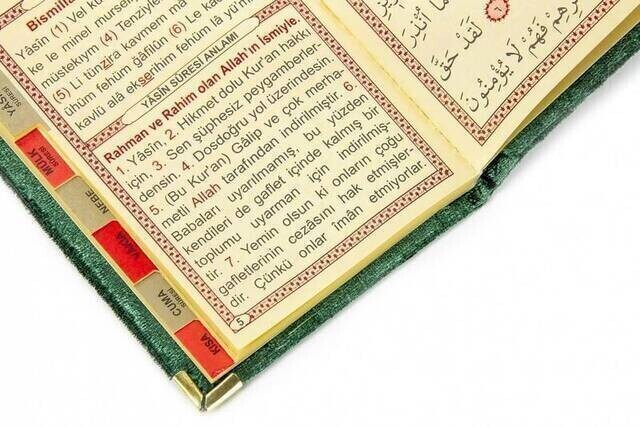 Bismillâ
Yâsîn (1) Vel ku
ke le minel mürseli
müstekıym (4) Tenziyle
ühüm fehüm ğâfilûn (6) Le ka
(5) Li tünzira kavmen
kavlü alâ ekserihim fehüm lâ yü'mi
YÂSÎN SÛRESİ ANLAMI
Rahman ve Rahim olan Allah'ın İsmiyle.
1. Yâsîn, 2. Hikmet dolu Kur'an hakkı
için, 3. Sen şüphesiz peygamberler-
densin. 4. Dosdoğru yol üzerindesin.
5. (Bu Kur'an) Gâlip ve çok merha-
metli Allah tarafından indirilmiştir. 6.
Babaları uyarılmamış, bu yüzden
kendileri de gaflet içinde kalmış bir
toplumu uyarman için indirilmiş-
tir. 7. Yemin olsun ki onların çoğu
gafletlerinin cezasını hak etmişler-
dir. Çünkü onlar îmân etmiyorlar.
5
YÂSÎN
SÛRESİ
MÜLK
SÛRESİ
NEBE
VAKIA
CUMA
SÛRESİ
KISA
لَقَدْ حَقَّ
فَهُمْ لَا يُؤْمِنُونَ